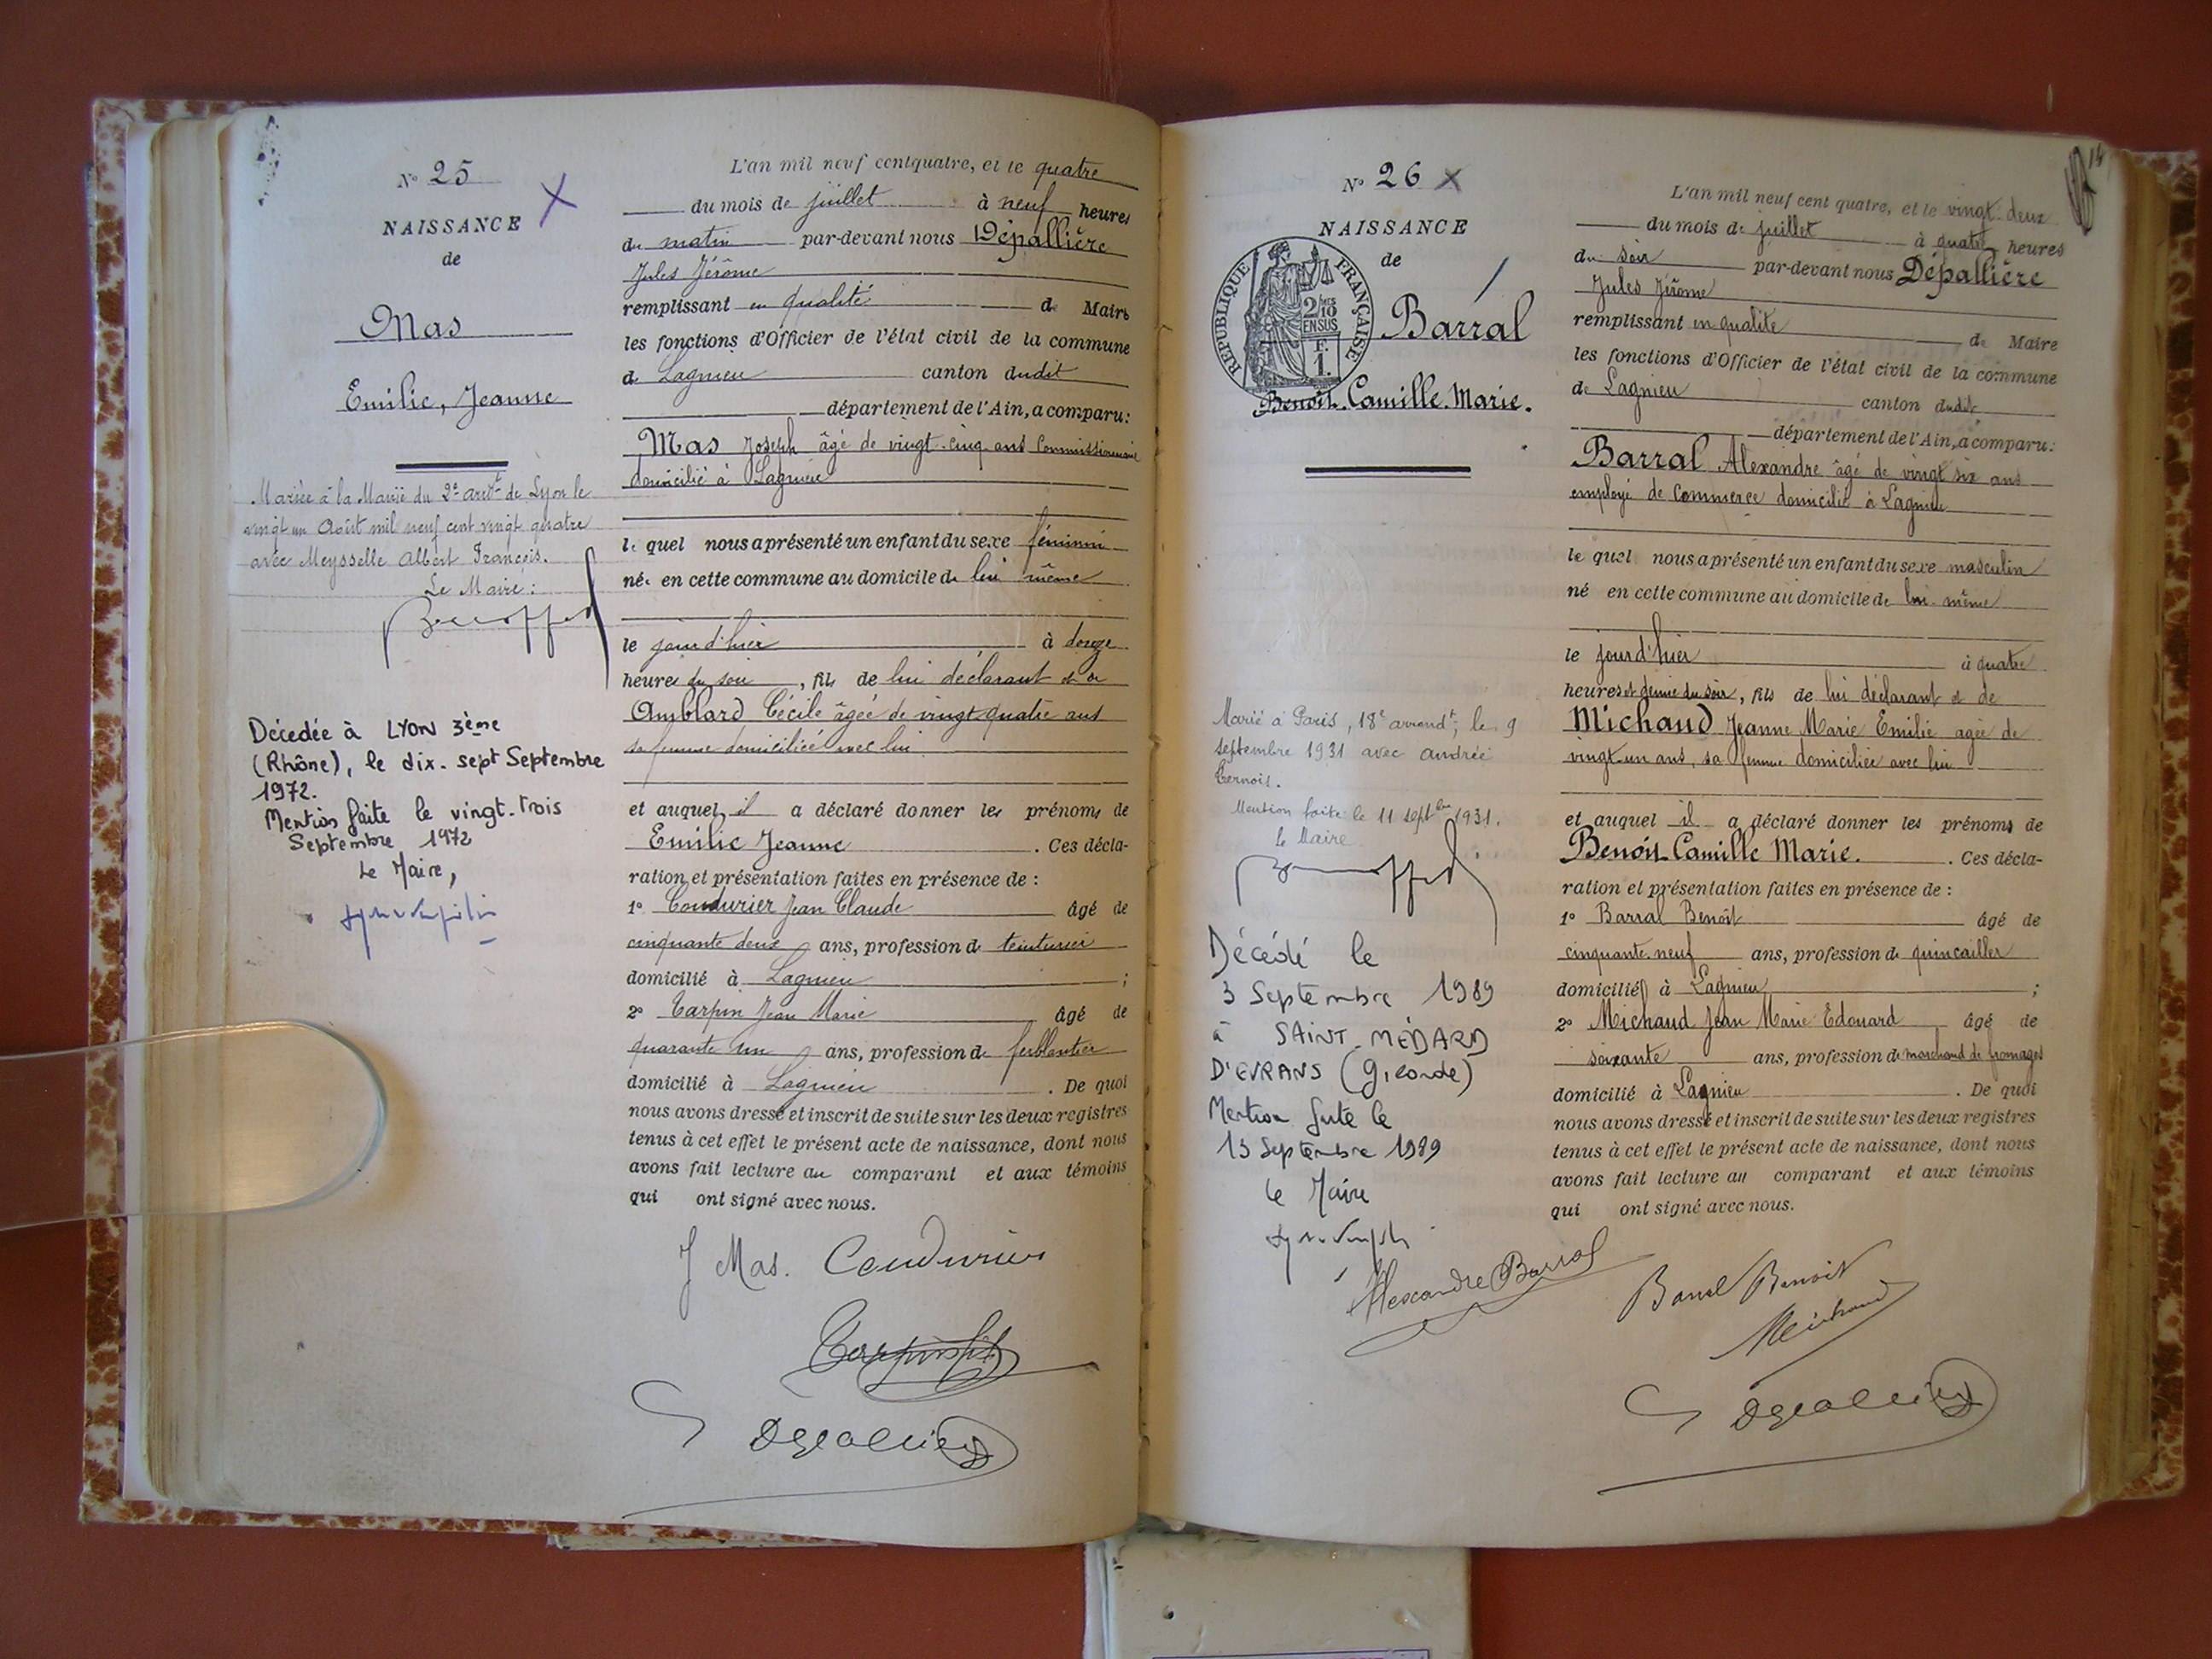 N° 25
NAISSANCE
de
Mas
Emilie, Jeanne
Mariée à la Mairie du 2e arrt de Lyon le
vingt un Août mil neuf cent vingt quatre
avec Meysselle Albert François.
Le Maire :
Décedée à LYON 3ème
(Rhône), le dix-sept Septembre
1972.
Mention faite le vingt-trois
Septembre 1972
Le Maire,
L'an mil neuf cent quatre, et le quatre
du mois de juillet à neuf heures
du matin par-devant nous Dépallière
Jules Jérôme
remplissant en qualité de Maire
les fonctions d'Officier de l'état civil de la commune
de Lagnieu canton dudit
département de l'Ain, a comparu:
Mas Joseph âgé de vingt-cinq ans Commissionnaire
domicilié à Lagnieu
le quel nous a présenté un enfant du sexe féminin
née en cette commune au domicile de lui même
le jour d'hier à douze
heures du soir, fils de lui déclarant et de
Amblard Cécile âgée de vingt quatre ans
sa femme domiciliée avec lui
et auquel il a déclaré donner les prénoms de
Emilie Jeanne. Ces décla-
ration et présentation faites en présence de :
1° Coudurier Jean Claude âgé de
cinquante deux ans, profession de teinturier
domicilié à Lagnieu ;
2° Carpin Jean Marie âgé de
quarante un ans, profession de ferblantier
domicilié à Lagnieu. De quoi
nous avons dressé et inscrit de suite sur les deux registres
tenus à cet effet le présent acte de naissance, dont nous
avons fait lecture au comparant et aux témoins
qui ont signé avec nous.
J Mas. Coudurier
N° 26
NAISSANCE
de
REPUBLIQUE FRANÇAISE
2/10
EN SUS
F.
1.
Barral
Benoît. Camille. Marie.
Marié à Paris, 18e arrondt, le 9
septembre 1931 avec Andrée
Mention faite le 11 septbre 1931.
le Maire
Décédé le
3 Septembre 1989
à SAINT-MÉDARD
D'EYRANS (Gironde)
Mention faite le
13 Septembre 1989
le Maire
14
L'an mil neuf cent quatre, et le vingt-deux
du mois de juillet à quatre heures
du soir par-devant nous Dépallière
Jules Jérôme
remplissant en qualité de Maire
les fonctions d'Officier de l'état civil de la commune
de Lagnieu canton dudit
département de l'Ain, a comparu:
Barral Alexandre âgé de vingt six ans
employé de Commerce domicilié à Lagnieu
le quel nous a présenté un enfant du sexe masculin
né en cette commune au domicile de lui-même
le jour d'hier à quatre
heures et demie du soir, fils de lui déclarant et de
Michaud Jeanne Marie Emilie agée de
vingt-un ans, sa femme domiciliée avec lui
et auquel il a déclaré donner les prénoms de
Benoît Camille Marie. Ces décla-
ration et présentation faites en présence de :
1° Barral Benoît âgé de
cinquante-neuf ans, profession de quincailler
domicilié à Lagnieu ;
2° Michaud Jean Marie Edouard âgé de
soixante ans, profession de marchand de fromages
domicilié à Lagnieu. De quoi
nous avons dressé et inscrit de suite sur les deux registres
tenus à cet effet le présent acte de naissance, dont nous
avons fait lecture au comparant et aux témoins
qui ont signé avec nous.
Alexandre Barral
Barral Benoit
Michaud